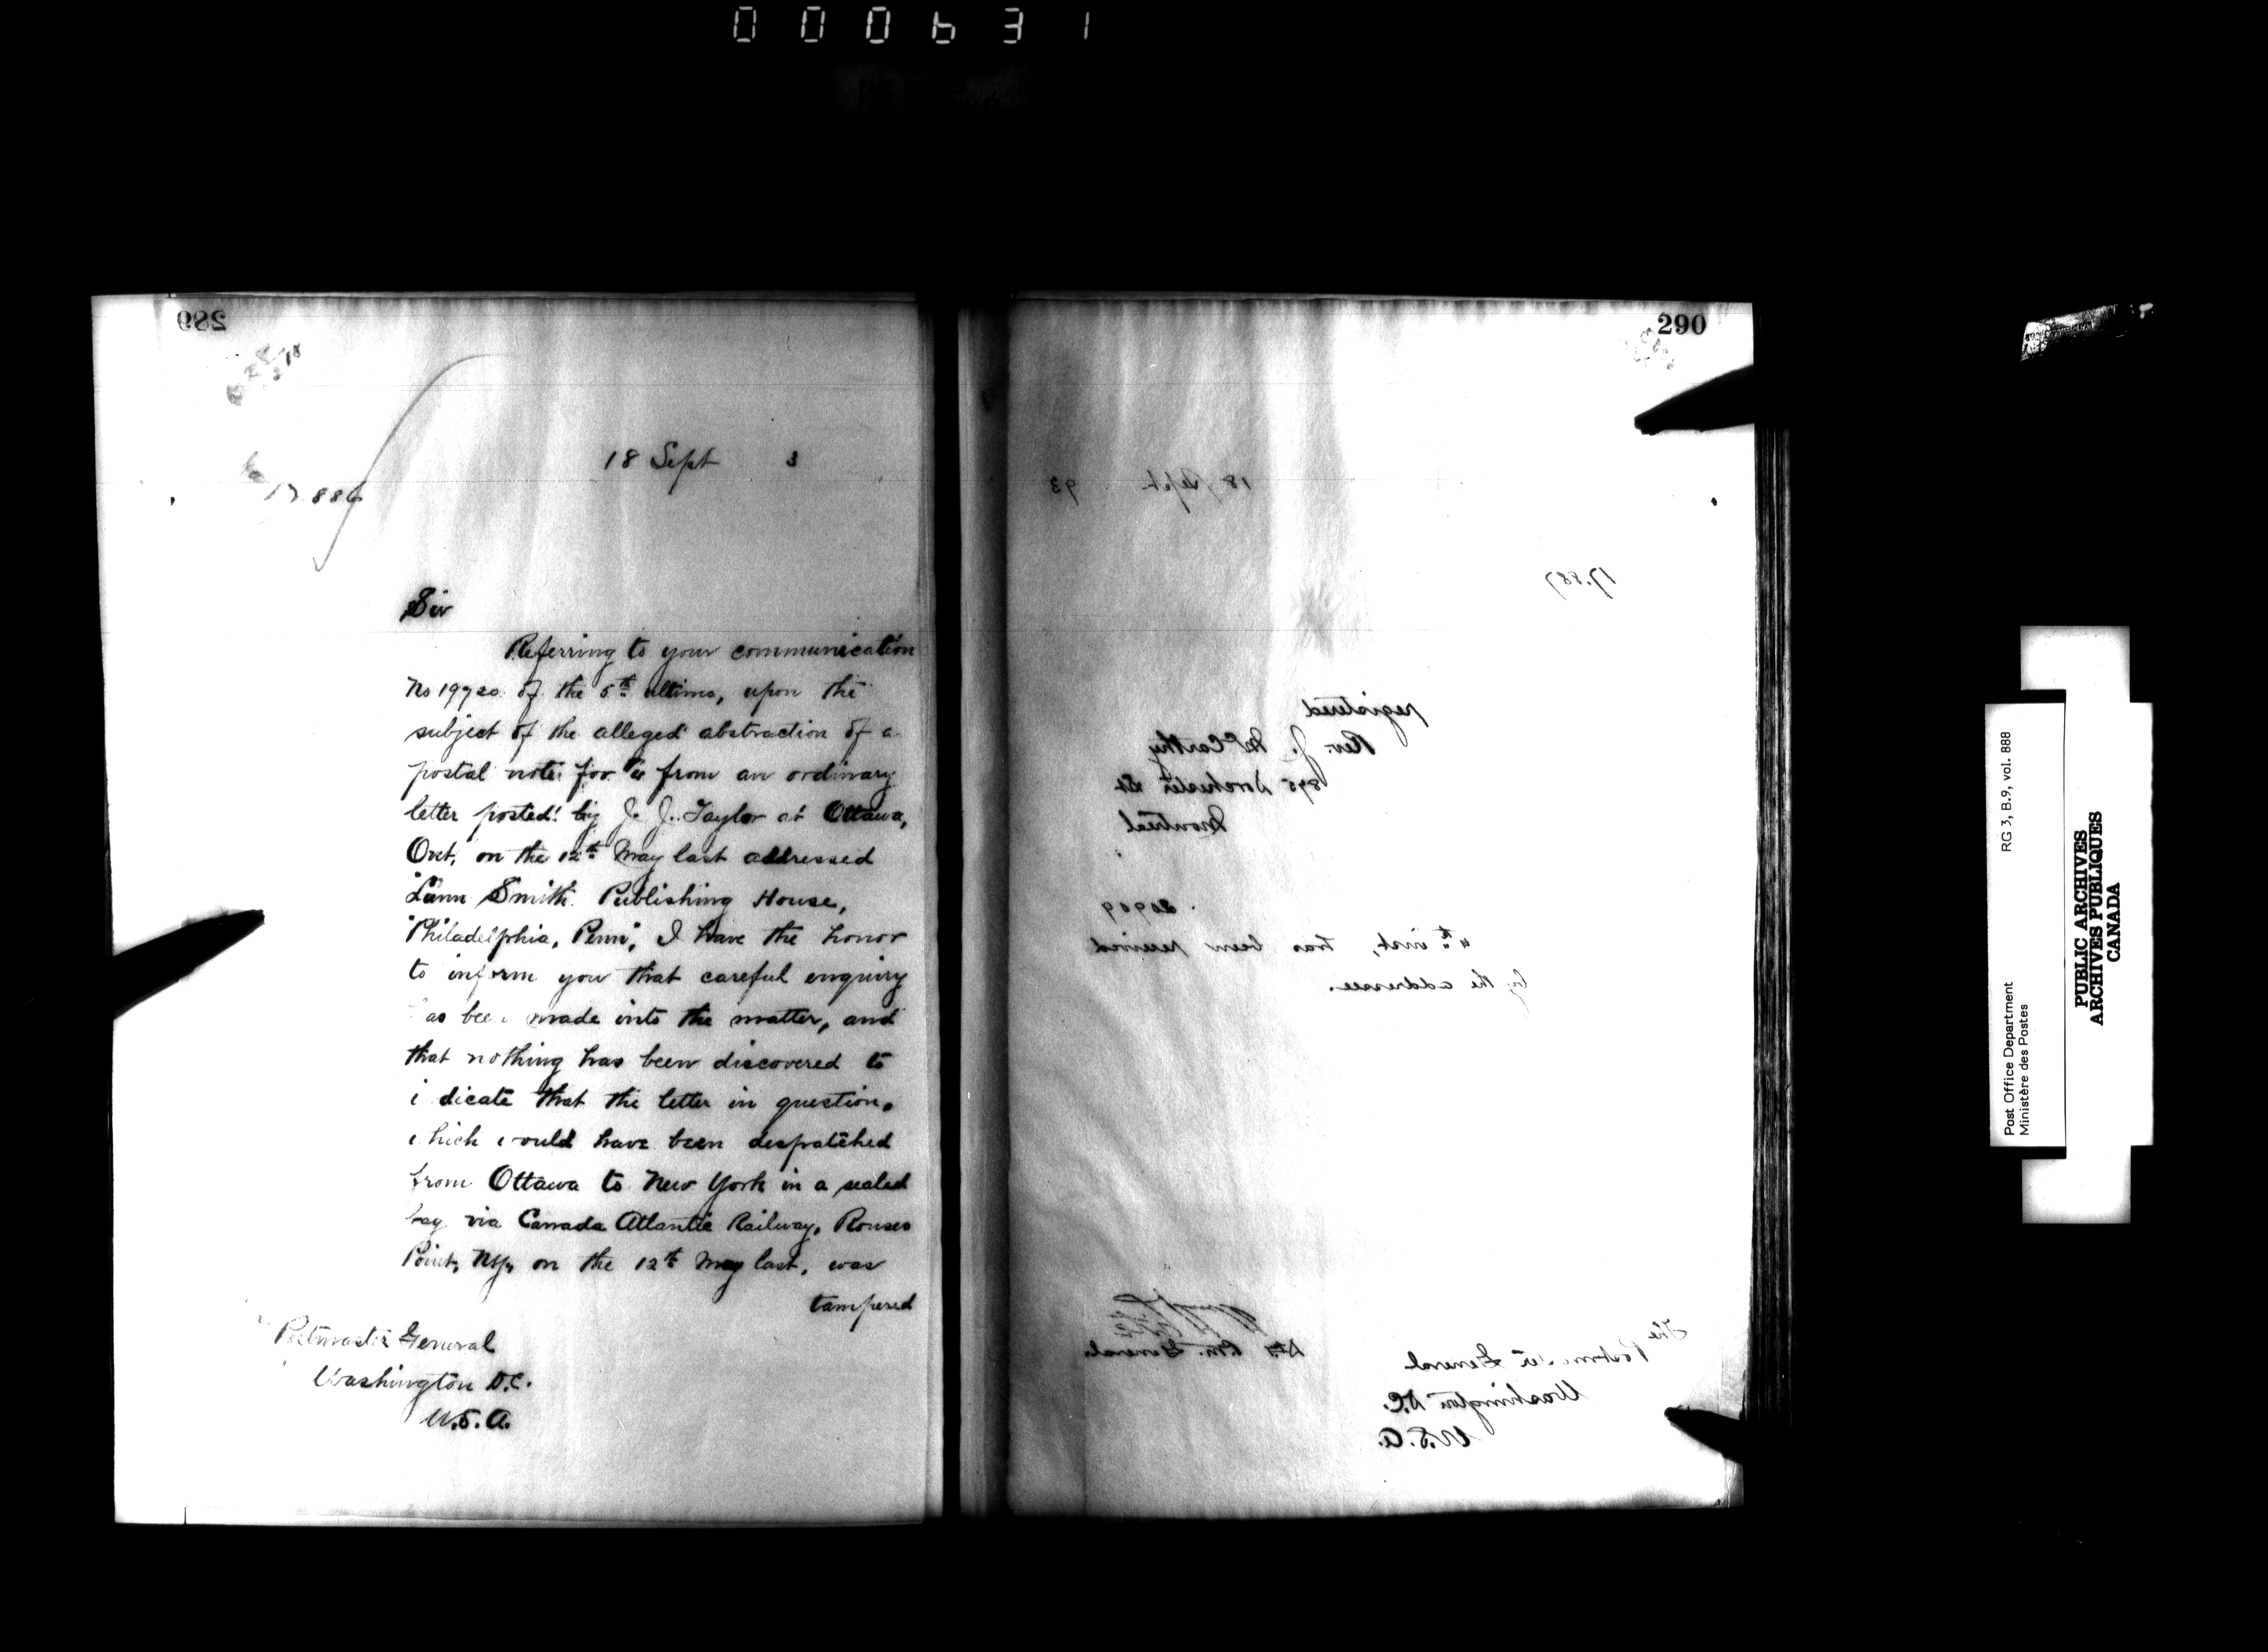 000631
289
18 Sept 3
17.886
Sir
Referring to your communication
No 19720. of the 5th ultimo, upon the
subject of the alleged abstraction of a
postal note for from an ordinary
letter posted by J. J. Taylor at Ottawa,
Ont, on the 12th May last addressed
Smith Publishing House,
"Philadelphia, Penn", I have the honor
to inform you that careful enquiry
as bee made into the matter, and
that nothing has been discovered to
i dicate that the letter in question,
which would have been despatched
from Ottawa to New York in a sealed
bag via Canada Atlantic Railway, Rouses
Point, NY, on the 12th May last, was
tampered
Postmaster General
Washington D.C.
U.S.A.
290
18 Sept. 93
17.887
registered
Rev. J. McCarthy
895 Dorchester St
Montreal
20909
4th inst, has been received
by the addressee.
Dty P.M. General
The Postmaster General
Washington D.C.
U.S.A.
Post Office Department
Ministère des Postes
RG 3, B.9, vol. 888
PUBLIC ARCHIVES
ARCHIVES PUBLIQUES
CANADA